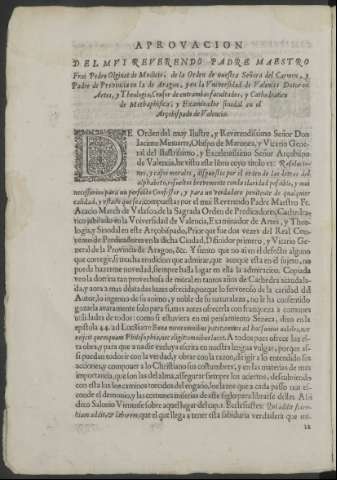 APROVACION
DEL MVI REVERENDO PADRE MAESTRO
Frai Pedro Olginat de Medicis, de la Orden de nuestra Señora del Carmen, y
Padre de Provincia en la de Aragon, y en la Vniversidad de Valencia Dotor en
Artes, y Theologia, Censor de entrambas facultades, y Cathedratico
de Methaphisica, y Examinador sinodal en el
Arçobispado de Valencia.
DE Orden del muy Ilustre, y Reverendissimo Señor Don
Iacinto Minuarte, Obispo de Maronea, y Vicario Gene-
ral del Ilustrissimo, y Excelentissimo Señor Arçobispo
de Valencia, he visto este libro cuyo titulo es: Resolucio-
nes, y casos morales, dispuestos por el orden de las letras del
alphabeto, resueltos brevemente con la claridad possible, y mui
necessarios para un perfecto Confessor, y para un verdadero penitente de qualquier
calidad, y estado que sea; compuestas por el mui Reverendo Padre Maestro Fr.
Acacio March de Velasco, de la Sagrada Orden de Predicadores, Cathedra-
tico jubilado en la Vniversidad de Valencia, Examinador de Artes, y Theo-
logia, y Sinodal en este Arçobispado, Prior que fue dos vezes del Real Con-
vento de Predicadores en la dicha Ciudad, Difinidor primero, y Vicario Ge-
neral de la Provincia de Aragon, &c. Y siento que no ai en el defecto alguno
que corregir, si mucha erudicion que admirar, que aunque esta en el sujeto, no
puede hazerme novedad, siempre halla lugar en ella la admiracion. Copiada
veo la dotrina tan provechosa de moral en tantos años de Cathedra acaudala-
da, y aora a mas dilatados fines ofrecida; porque lo fervoroso de la caridad del
Autor, lo ingenuo de su animo, y noble de su naturaleza, no le ha consentido
gozarla avaramente solo para si, antes nos la ofrecerla con franqueza a comunes
utilidades de todos: como si estuviera en mi pensamiento Seneca, dixo en la
epistola 44. ad Lucilium: Bona mens omnibus patet, omnes ad hoc sumus nobiles, nec
rejicit quemquam Philosophia, nec eligit: omnibus lucet. A todos pues ofrece luz es-
ta obra, y para que a nadie excluya escrita en nuestra lengua vulgar, porque as-
si puedan todos ir con la verdad, y obrar con la razon, dirigir a lo entendido sus
acciones, y componer a lo Christiano sus costumbres, y en las materias de mas
importancia, que son las del alma, assegurar siempre los aciertos, descubriendo
con esta luz los caminos torcidos del engaño, los lazos que a cada passo nos es-
conde el demonio, y las comunes miserias de este siglo para librarse dellas. Añ-
dico Salonio Viennense sobre aquel lugar del cap. 2. Ecclesiastes: Qui addit scien-
tiam addit, & laborem, que el que llega a tener esta sabiduria verdadera que mi-
ra